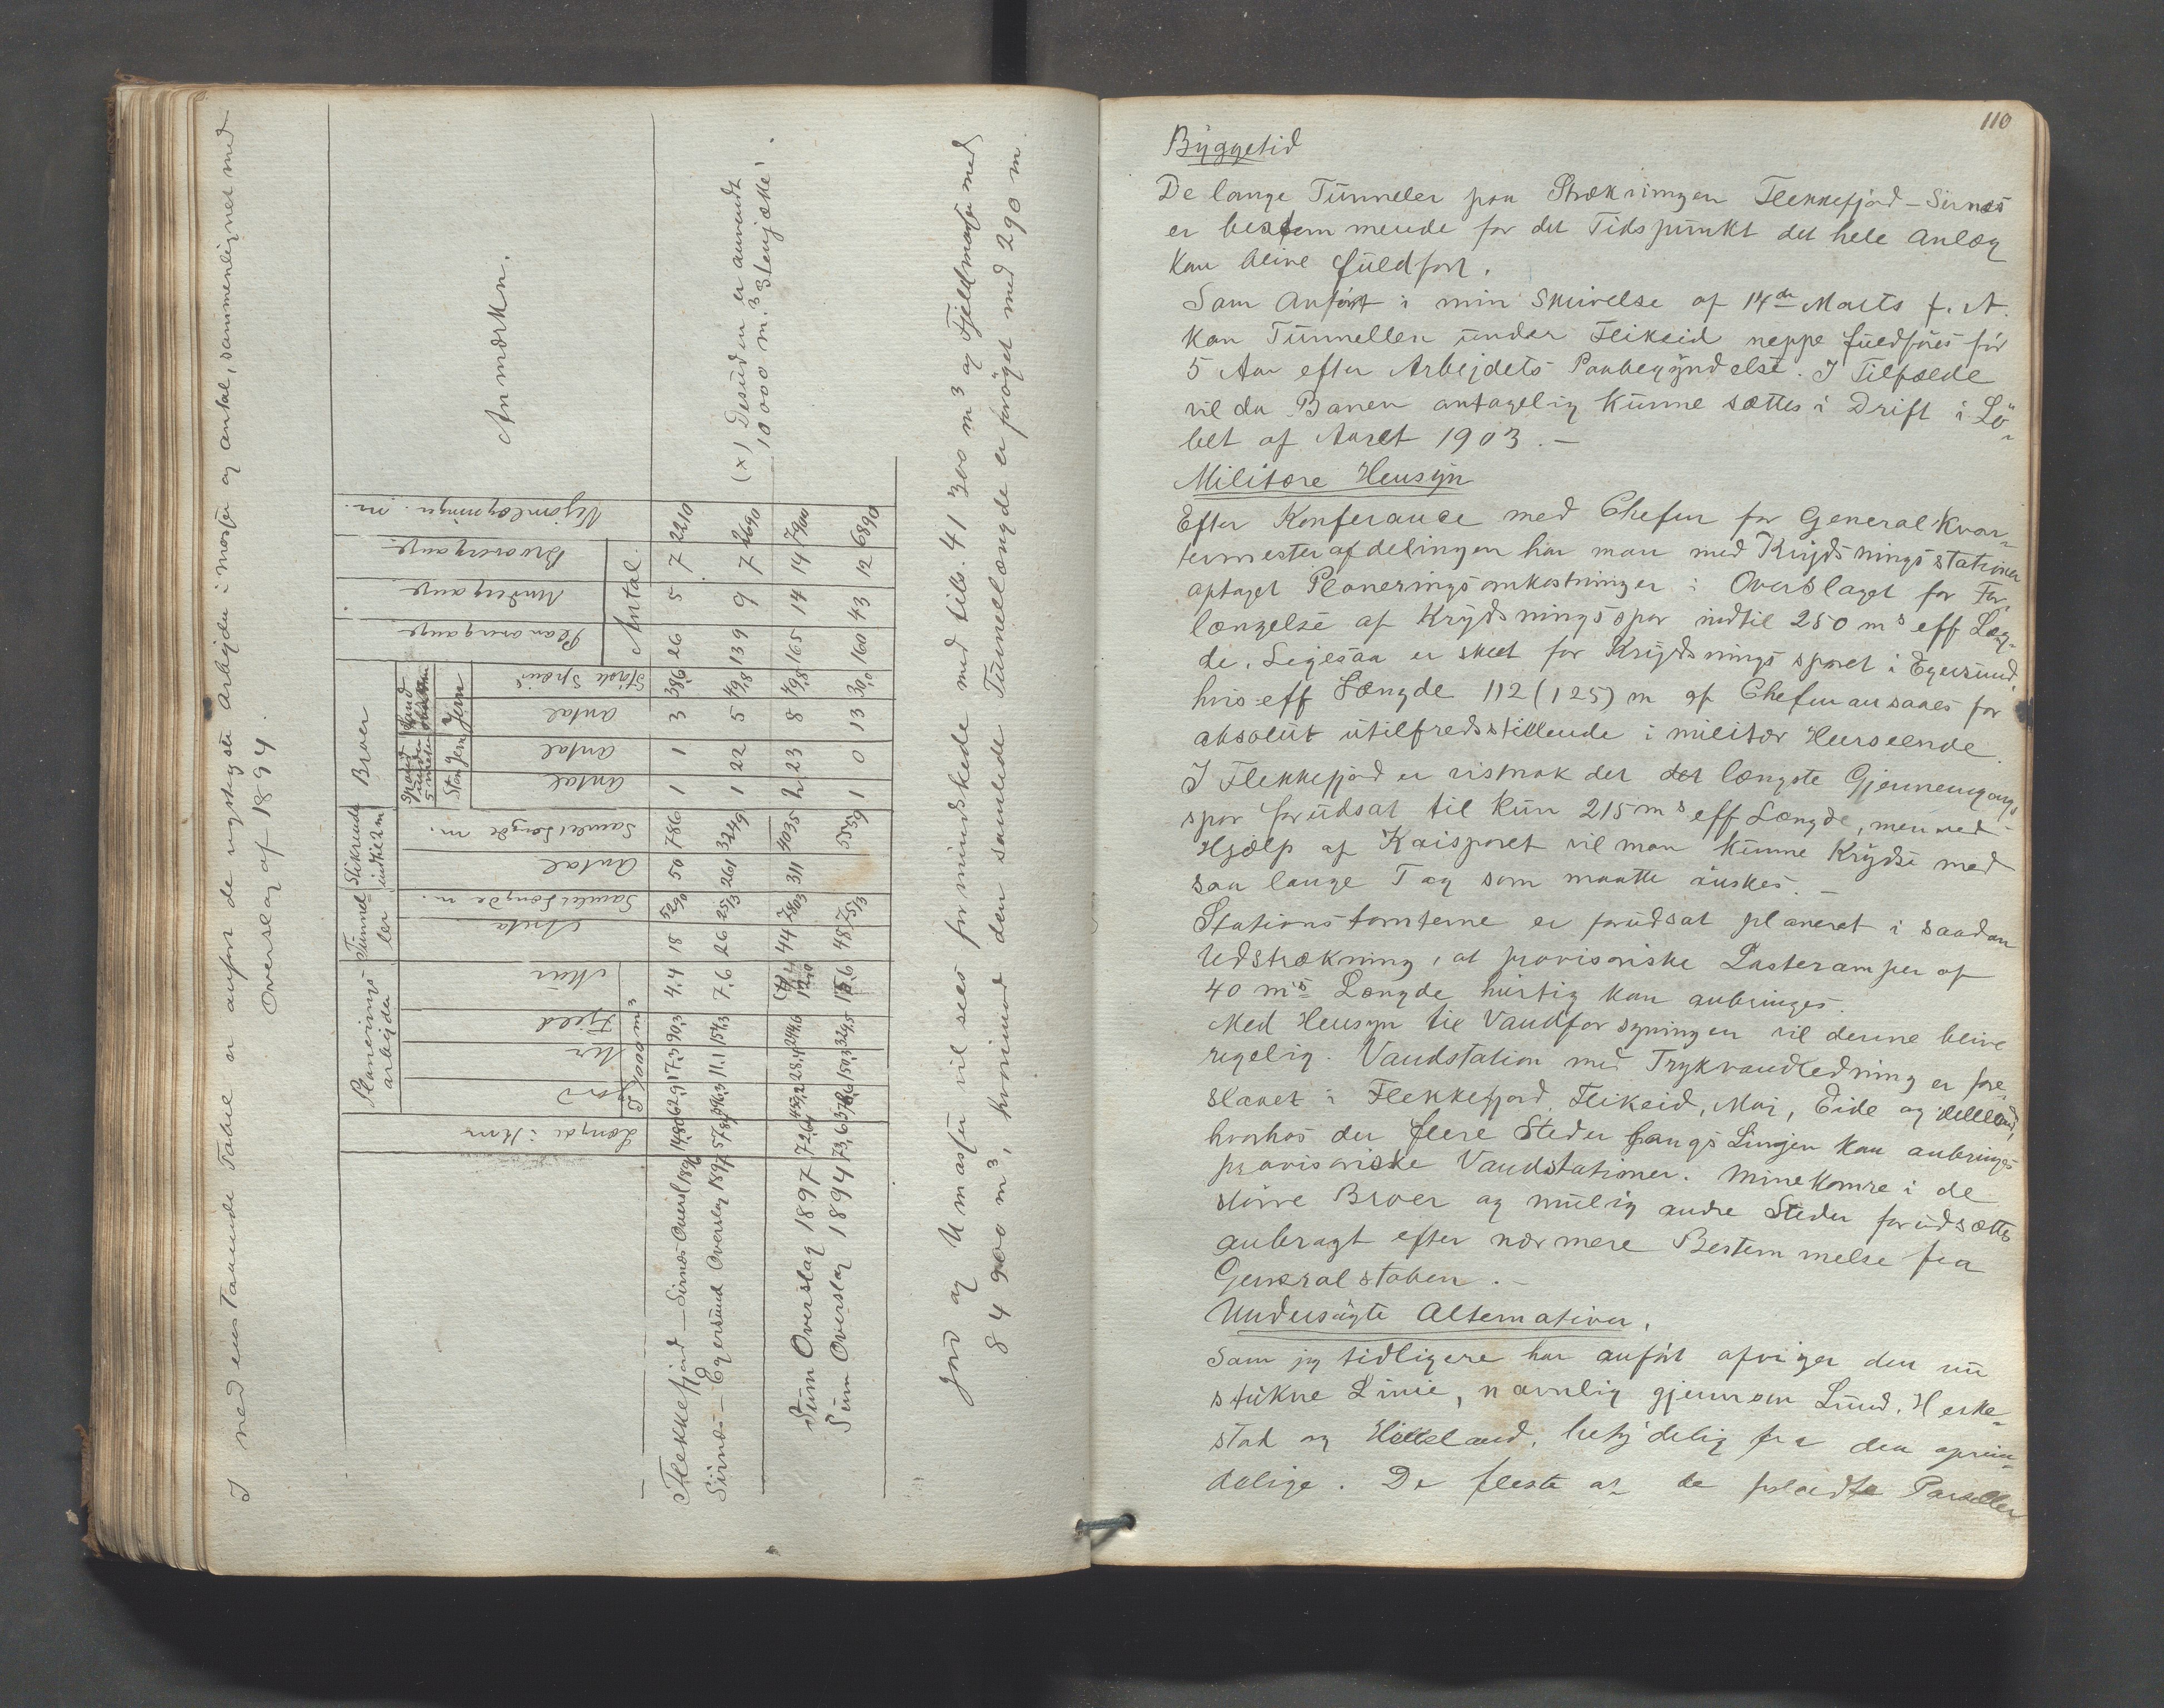 I nedenstaaende Tabel er anført de vigtigste Arbejder i masse og antal, sammenlignet med
Overslag af 1894.
Længde i Km
Planerings arbejder
Jord
Ur
Fjeld
Mur
I 1000 m³
Tunneler
Antal
Samlet Længde m.
Stikrender indtil 2 m
Antal
Samlet Længde m.
Broer
Spand under 5 meter
Sten
Jern
Antal
Antal
Jern
Antal
Største Spand
Planovergange
Undergange
Broovergange
Antal
Vejomlægninger m.
Anmærkn.
Flekkefjord – Sirnæs Oversl 1897 14.80 62.9 17.3 90.3 4.4 18 5290 50 786 1 1 3 38.6 26 5 7 2210
Sirnæs – Egersund Overslag 1897 57.84 11.1 154.3 7.6 26 2513 261 3249 1 22 5 49.8 139 9 7 2690
(x) Desuden er anvendt
10000 m.³ Stenjætte.
Sum Overslag 1897 72.64 28.4 244.6 12.0 44 7803 311 4035 2 23 8 49.8 165 14 14 7900
Sum Overslag 1894 73.6 150.3 329.5 15.6 48 7513 5539 1 0 13 30.0 160 43 12 6890
Jord og Urmasser vil sees formindskede med tils. 41300 m³ og Fjeldmasser med
84900 m³, hvorimod den samlede Tunnellængde er forøget med 290 m.
110
Byggetid
De lange Tunneler paa Strækningen Flekkefjord – Sirnæs
er bestemmende for det Tidspunkt det hele Anlæg
kan blive fuldført.
Som anført i min Skrivelse af 14de Marts f. A.
kan Tunnellen under Flikeid neppe fuldføres før
5 Aar efter Arbejdets Paabegyndelse. I Tilfælde
vil da Banen antagelig kunne sættes i Drift i Lö-
bet af Aaret 1903. –
Militære Hensyn
Efter Konferance med Chefen for General Kvar-
termesterafdelingen har man med Krydsningsstationer
optaget Planeringsomkostninger i Overslaget for For-
længelse af Krydsningsspor indtil 250 ms eff Læng-
de. Ligesaa er skeet for Krydsningssporet i Egersund,
hvis eff Længde 112 (125) m af Chefen ansaaes for
absolut utilfredsstillende i militær Henseende.
I Flekkefjord er vistnok det det længste Gjennemgangs
spor forudsat til kun 215 ms eff Længde, men ved
Hjælp af Kaisporet vil man kunne krydse med
saa lange Tog som maatte ønskes. –
Stationstomterne er forudsat planeret i saadan
Udstrækning, at provisoriske Lasteramper af
40 ms Længde hurtig kan anbringes.
Med Hensyn til Vandforsyningen vil denne blive
rigelig. Vandstation med Trykvandledning er fore-
slaaet i Flekkefjord, Flikeid, Moi, Eide og Helleland,
hvorhos der flere Steder langs Linjen kan anbringes
provisoriske Vandstationer. Minekamre i de
större Broer og mulig andre Steder forudsættes
anbragt efter nærmere Bestemmelse fra
Generalstaben. –
Undersøgte Alternativer.
Som jeg tidligere har anført afviger den nu
stukne Linie, navnlig gjennem Lund, Heske-
stad og Helleland, betydelig fra den oprin-
delige. De fleste af de Parceller